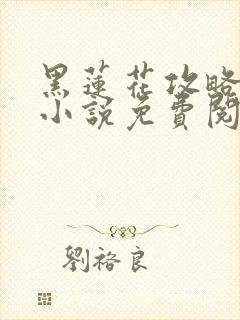 黑蓮花攻略
小說免費閱
劉裕良